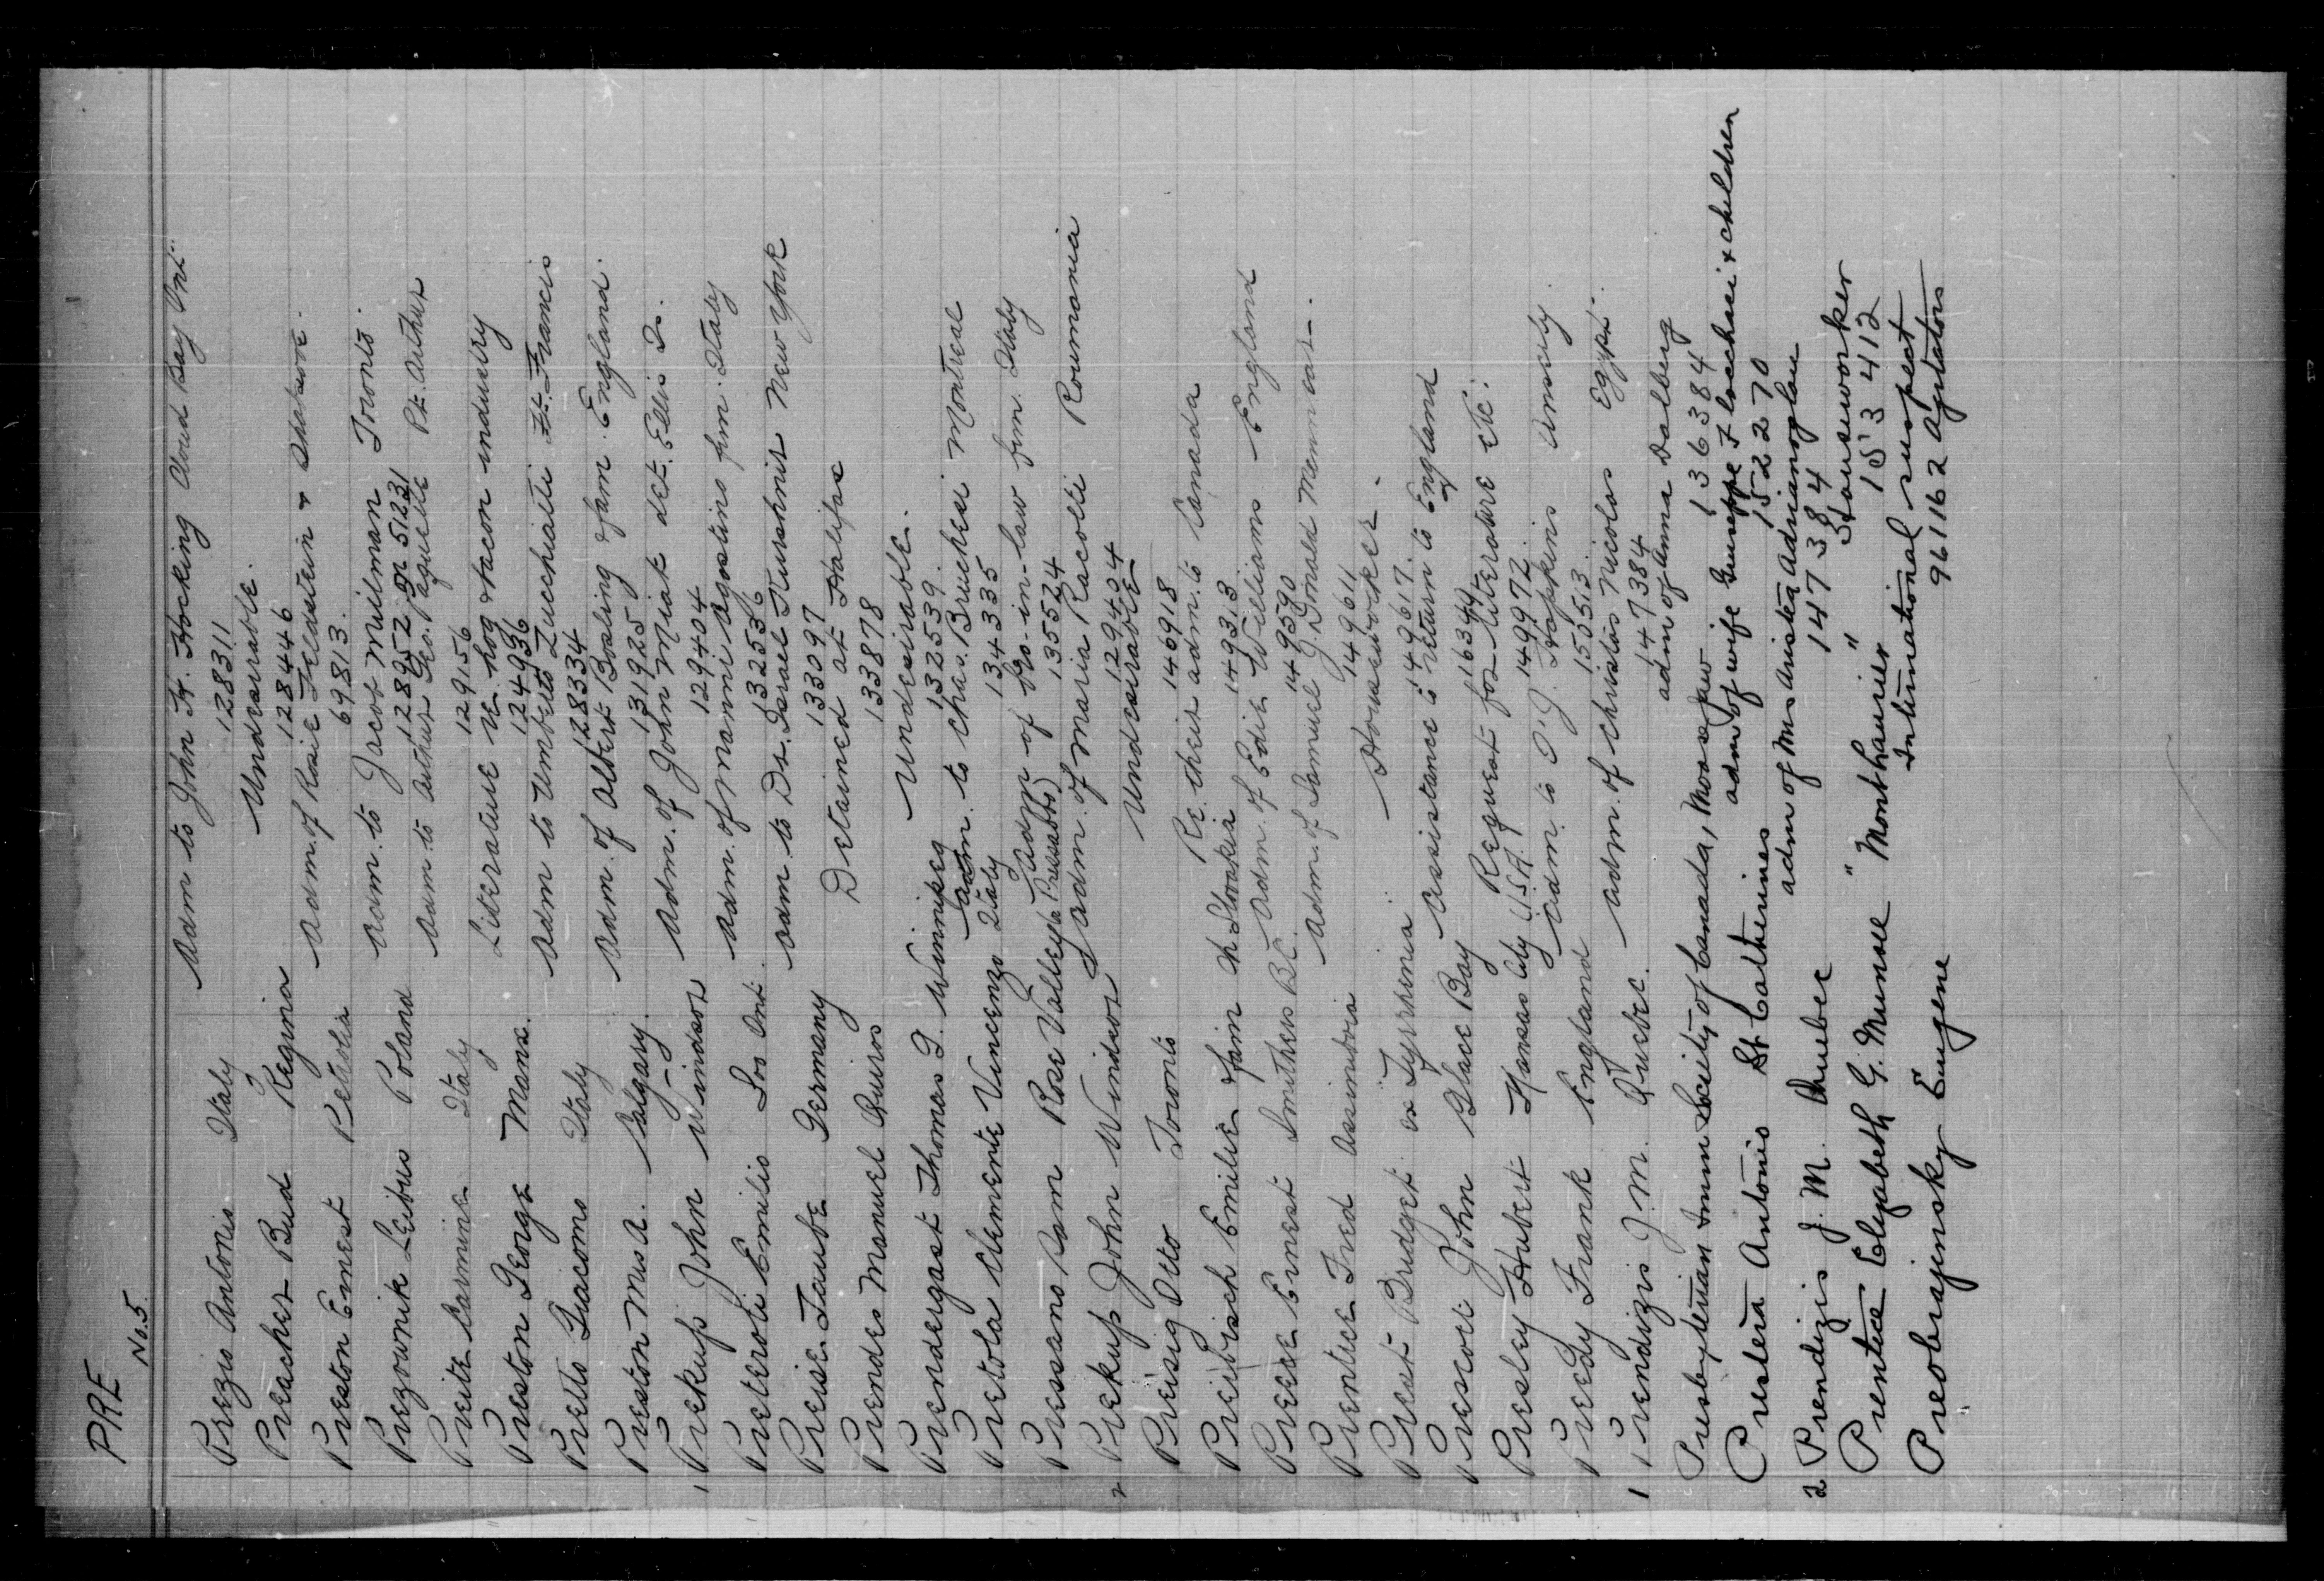 PRE
No. 5.
Prezio Antonio Italy Adm to John H. Hocking Cloud Bay Ont.
128311
Preacher Bud Regina Undesirable.
128446
Preston Ernest Petrolia Adm. of Rosie Feldstein & Shaksove.
69813.
Prezownik Leibus Poland Adm. to Jacob Milman Toronto.
128952 or 51231
Preite Carmine Italy Adm. to Arthur Geo. Paquette Pt. Arthur
129156
Preston George Mans. Literature re hog & bacon industry
124936
Pretto Giacomo Italy Adm to Umberto Zucchiatti Ft. Francis
128334
Preston Mrs A. Calgary. Adm. of Albert Bosling & fam. England.
131925
1 Prekup John Windsor Adm. of John Miak det. Ellis Is.
129404
Preteroti Emilio Loo Ont. Adm. of Manni Agostino fam. Italy
132536
Preise Taube Germany Adm. to Dr. Israel Kurshnir New York
133097
Prendes Manuel Quiros Detained at Halifax
133878
Prendergast Thomas D. Winnipeg Undesirable.
132539.
Pretola Clemente Vincenzo Italy Adm. to Chas. Bruchesi Montreal
134335
Pressano Sam Rose Valley (Pressabto) Adm of bro-in-law fam. Italy
135524
2 Prekup John Windsor Adm. of Maria Racolti Roumania
129404
Preisig Otto Toronto Undesirable
146918
Preibisch Emilie & fam in Slovakia Re. their adm. to Canada
149313
Preece Ernest Smithers B.C. Adm. of Edith Williams England
149590
Prentice Fred Assiniboia Adm. of Samuel J. Donald Menmear.
149611
Preat Bridget ex Tyrrhenia Houseworker.
149617.
Prescott John Glace Bay Assistance to return to England
116344
Presley Hubert Kansas City U.S.A. Request for literature etc.
149972.
Preedy Frank England Adm. to D. J. Hopkins Amsely.
150513.
1 Prendizis J. M. Quebec. Adm. of Christos Nicolas Egypt.
147384
Presbyterian Immn Society of Canada, Moose Jaw adm of Anna Dalberg
136384
Prestera Antonio St Catherines adm of wife Guiseppe Flocchasi & children
152270
2 Prendizis J. M. Quebec adm of Mrs Aristea Adrianoglou
147384
Prentice Elizabeth G. Munroe " Monthausier " Houseworker
153412
Preobrajensky Eugene International suspect
961162 Agitators